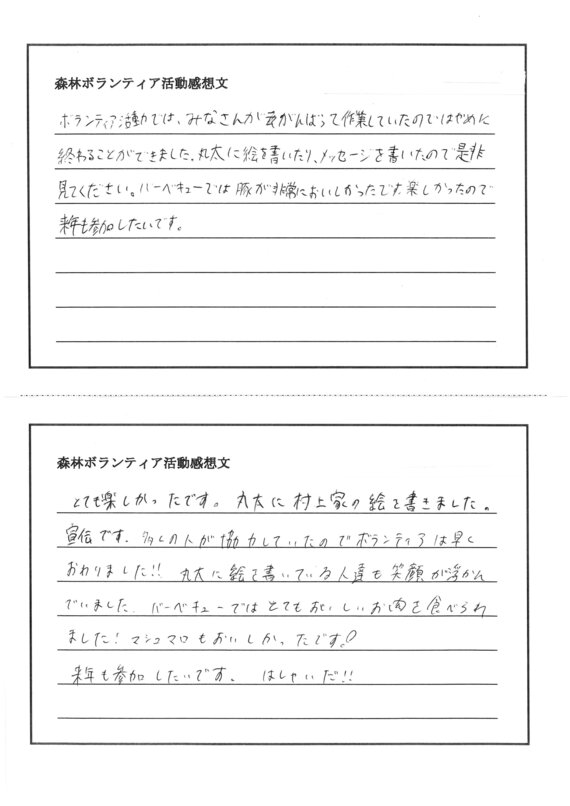 森林ボランティア活動感想文
ボランティア活動では、みなさんががんばって作業していたのではやめに
終わることができました。丸太に絵を書いたり、メッセージを書いたので是非
見てください。バーベキューでは豚が非常においしかったです。楽しかったので
来年も参加したいです。
森林ボランティア活動感想文
とても楽しかったです。丸太に村上家の絵を書きました。
宣伝です。多くの人が協力していたのでボランティアは早く
おわりました!! 丸太に絵を書いている人達も笑顔が浮かん
でいました。バーベキューではとてもおいしいお肉を食べられ
ました!マシュマロもおいしかったです。
来年も参加したいです。 はしゃいだ!!